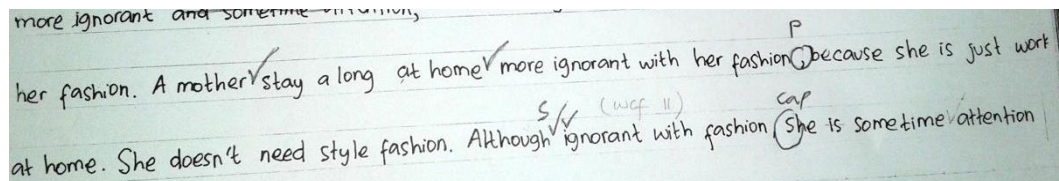 more ignorant and sometime
P
her fashion. A mother stay a long at home more ignorant with her fashion, because she is just work
S/V (wcf 11) cap
at home. She doesn't need style fashion. Although ignorant with fashion She is sometime attention